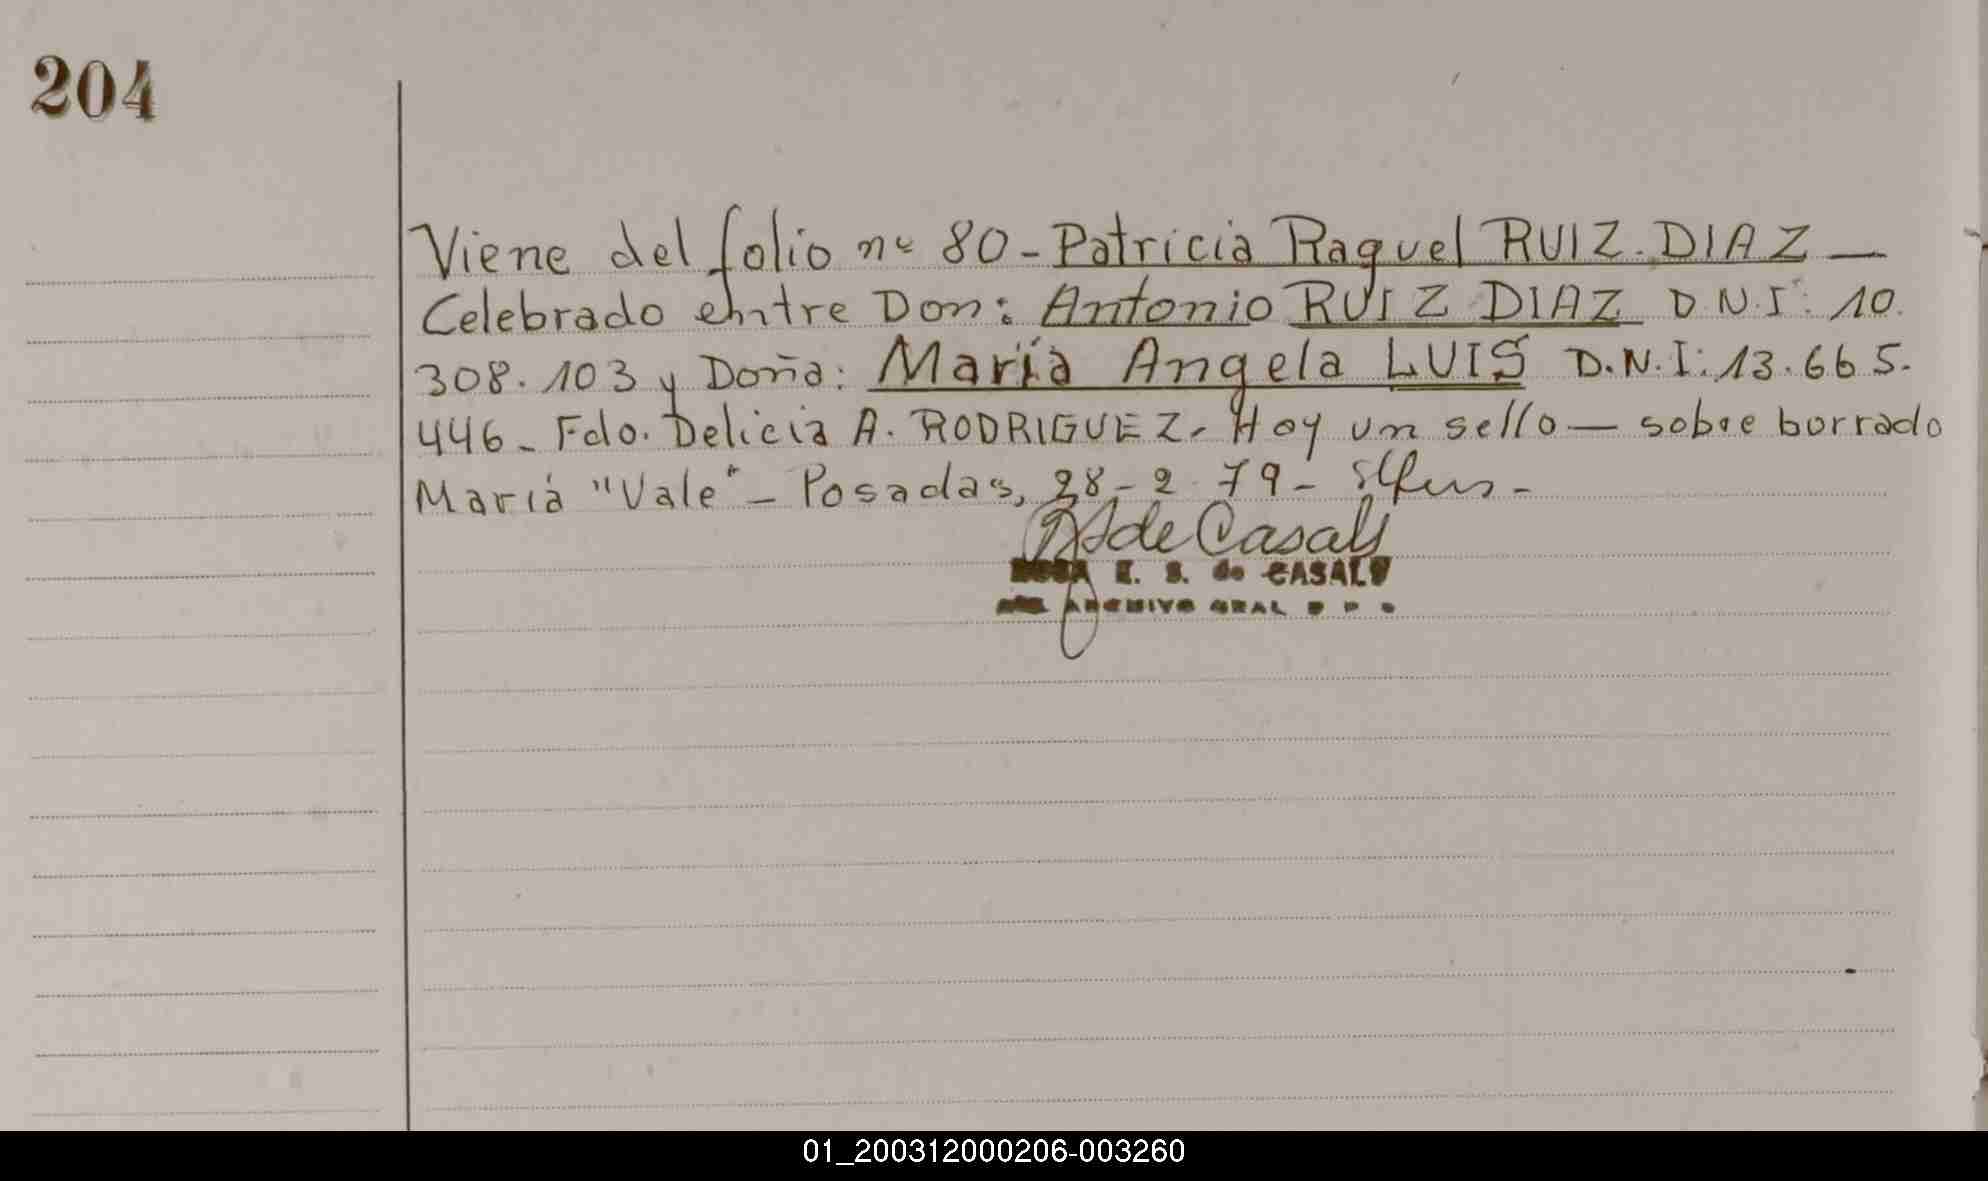 204
Viene del folio nº 80 - Patricia Raquel RUIZ. DIAZ —
Celebrado entre Don: Antonio RUIZ DIAZ D.N.I: 10.
308.103 y Doña: María Angela LUIS D.N.I: 13.665.
446 - Fdo. Delicia A. RODRIGUEZ. Hay un sello — sobre borrado
María "Vale" - Posadas, 28 - 2 - 79 -
de Casals
E. S. de CASALS
ARCHIVO GRAL
01_200312000206-003260